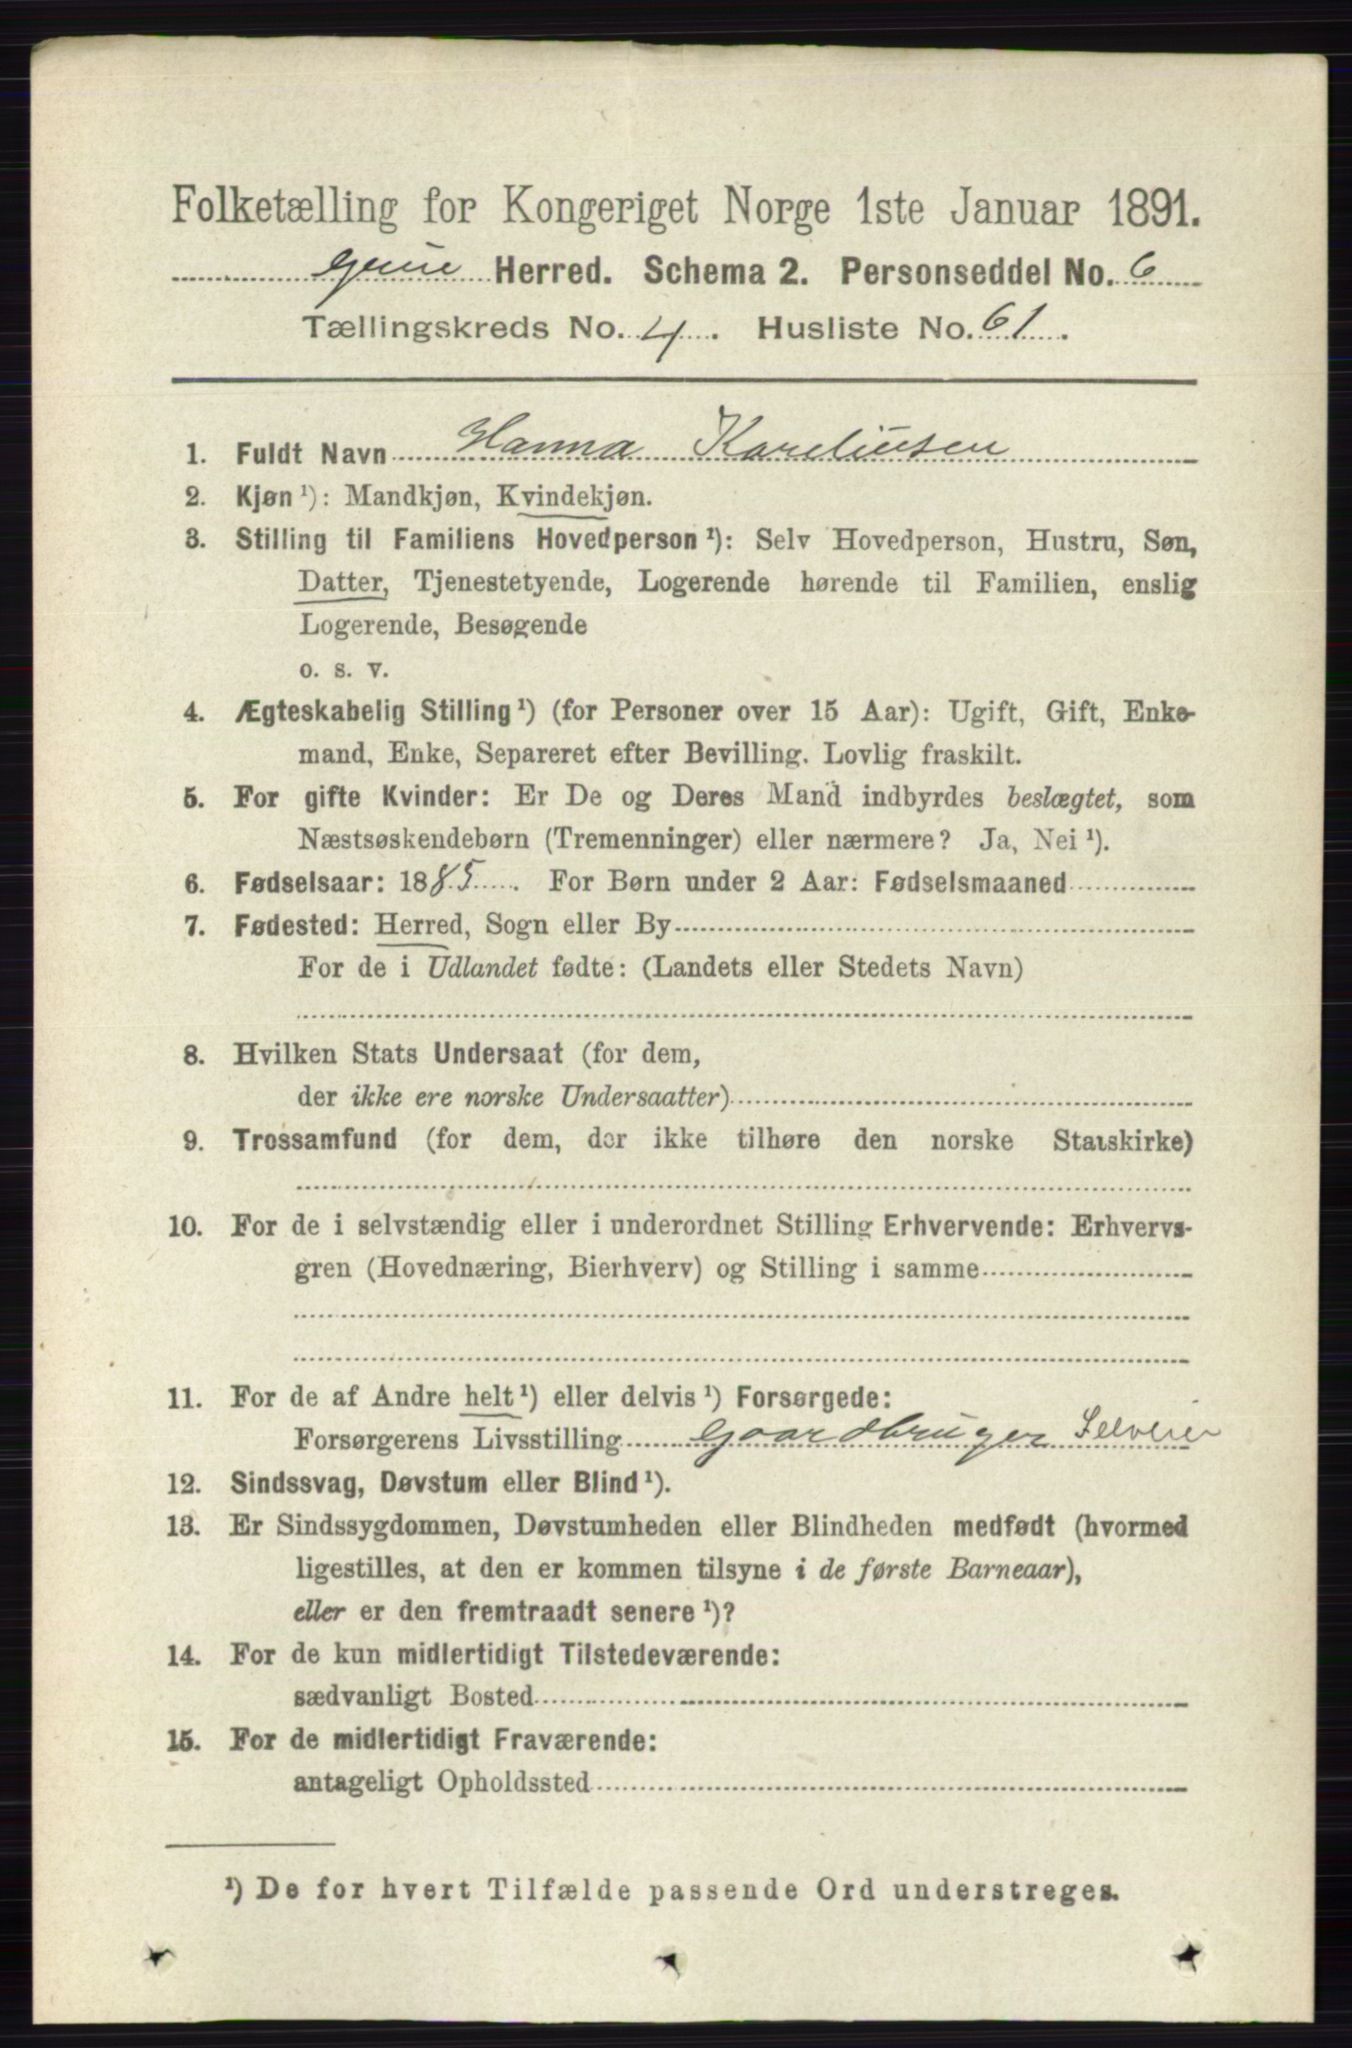 Folketælling for Kongeriget Norge 1ste Januar 1891.
Herred. Schema 2. Personseddel No. 6
Tællingskreds No. 4. Husliste No. 61.
1. Fuldt Navn Hanna Kareliusen
2. Kjøn ¹): Mandkjøn, Kvindekjøn.
3. Stilling til Familiens Hovedperson ¹): Selv Hovedperson, Hustru, Søn,
Datter, Tjenestetyende, Logerende hørende til Familien, enslig
Logerende, Besøgende
o. s. v.
4. Ægteskabelig Stilling ¹) (for Personer over 15 Aar): Ugift, Gift, Enke-
mand, Enke, Separeret efter Bevilling. Lovlig fraskilt.
5. For gifte Kvinder: Er De og Deres Mand indbyrdes beslægtet, som
Næstsøskendebørn (Tremenninger) eller nærmere? Ja, Nei ¹).
6. Fødselsaar: 1885. For Børn under 2 Aar: Fødselsmaaned
7. Fødested: Herred, Sogn eller By
For de i Udlandet fødte: (Landets eller Stedets Navn)
8. Hvilken Stats Undersaat (for dem,
der ikke ere norske Undersaatter)
9. Trossamfund (for dem, der ikke tilhøre den norske Statskirke)
10. For de i selvstændig eller i underordnet Stilling Erhvervende: Erhvervs-
gren (Hovednæring, Bierhverv) og Stilling i samme
11. For de af Andre helt ¹) eller delvis ¹) Forsørgede:
Forsørgerens Livsstilling Gaardbruger Selveier
12. Sindssvag, Døvstum eller Blind ¹).
13. Er Sindssygdommen, Døvstumheden eller Blindheden medfødt (hvormed
ligestilles, at den er kommen tilsyne i de første Barneaar),
eller er den fremtraadt senere ¹)?
14. For de kun midlertidigt Tilstedeværende:
sædvanligt Bosted
15. For de midlertidigt Fraværende:
antageligt Opholdssted
¹) De for hvert Tilfælde passende Ord understreges.